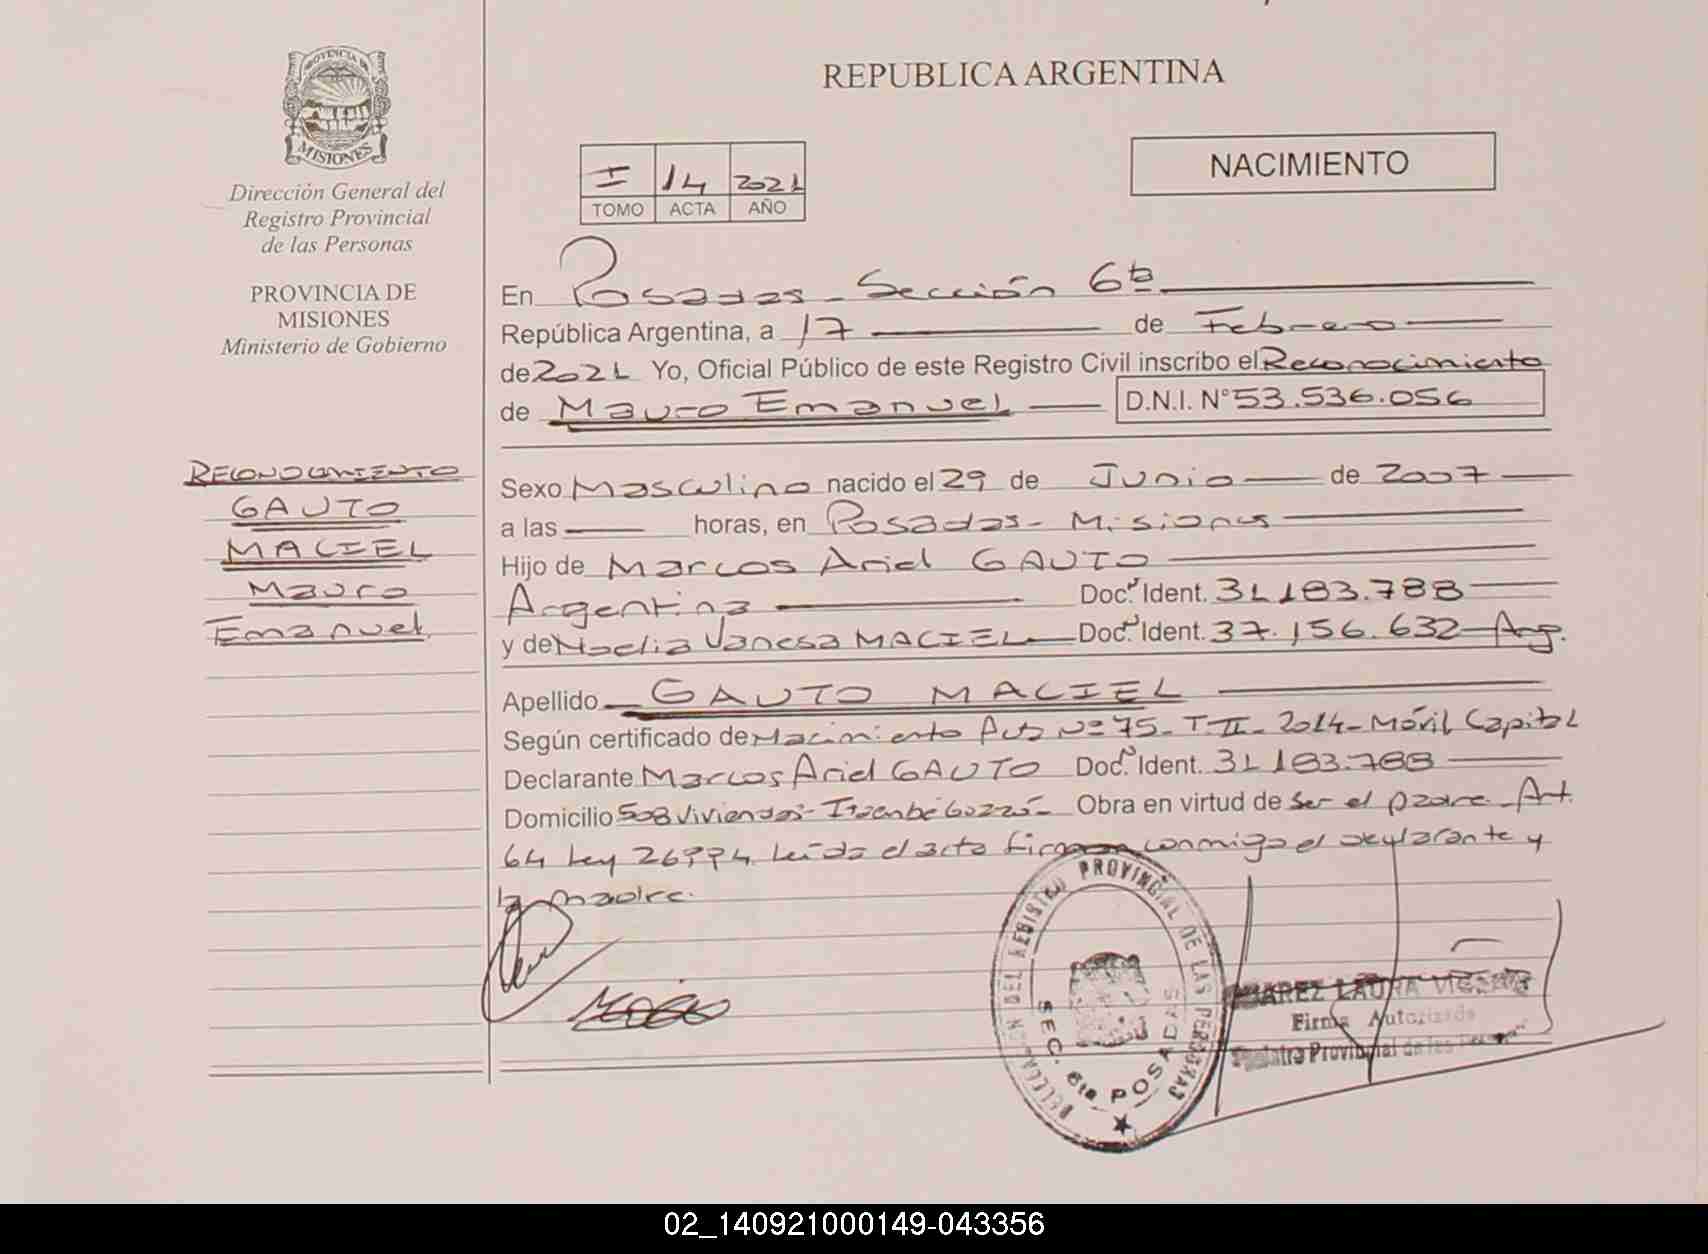 PROVINCIA DE
MISIONES
Dirección General del
Registro Provincial
de las Personas
PROVINCIA DE
MISIONES
Ministerio de Gobierno
RECONOCIMIENTO
GAUTO
MACIEL
Mauro
Emanuel
REPUBLICA ARGENTINA
I 14 2021
TOMO ACTA AÑO
NACIMIENTO
En Posadas - Sección 6ta
República Argentina, a 17 de Febrero
de 2021 Yo, Oficial Público de este Registro Civil inscribo el Reconocimiento
de Mauro Emanuel D.N.I. N° 53.536.056
Sexo Masculino nacido el 29 de Junio de 2007
a las horas, en Posadas - Misiones
Hijo de Marcos Ariel GAUTO
Argentina Doc. Ident. 31.183.788
y de Noelia Vanesa MACIEL Doc. Ident. 37.156.632 Arg.
Apellido GAUTO MACIEL
Según certificado de Nacimiento Acta N° 75 - T. II - 2014 - Móvil Capital
Declarante Marcos Ariel GAUTO Doc. Ident. 31.183.788
Domicilio 508 Viviendas - Itaembé Guazú - Obra en virtud de ser el padre. Art.
64 Ley 26994. Leída el acta firman conmigo el declarante y
la madre.
DELEGACIÓN DEL REGISTRO PROVINCIAL DE LAS PERSONAS
SEC. 6ta POSADAS
LAURA
Firma Autorizada
Registro Provincial de las Personas
02_140921000149-043356